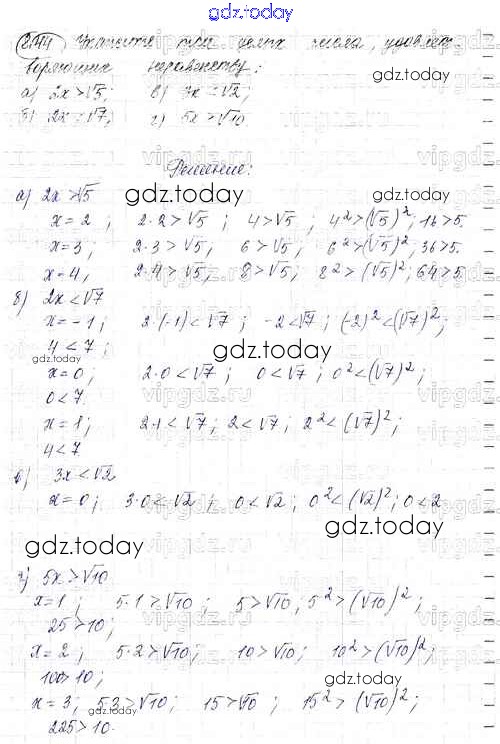 gdz.today
2.44 Укажите три целых числа, удовлет
воряющих неравенству:
а) 2x>√5; в) 3x<√2;
б) 2x<√7; г) 5x>√10.
Решение:
а) 2x>√5
gdz.today
x=2; 2·2>√5; 4>√5; 4²>(√5)²; 16>5.
x=3; 2·3>√5; 6>√5; 6²>(√5)²; 36>5.
x=4, 2·4>√5; 8>√5; 8²>(√5)²; 64>5
б) 2x<√7
x=-1; 2·(-1)<√7; -2<√7; (-2)²<(√7)²;
4<7;
gdz.today
gdz.today
x=0; 2·0<√7; 0<√7; 0²<(√7)²;
0<7.
x=1; 2·1<√7; 2<√7; 2²<(√7)²;
4<7
в) 3x<√2
x=0; 3·0<√2; 0<√2; 0²<(√2)²; 0<2
gdz.today
gdz.today
г) 5x>√10
x=1; 5·1>√10; 5>√10; 5²>(√10)²;
25>10;
x=2; 5·2>√10; 10>√10; 10²>(√10)²;
100>10;
gdz.today
x=3; 5·3>√10; 15>√10; 15²>(√10)²;
225>10.
gdz.today